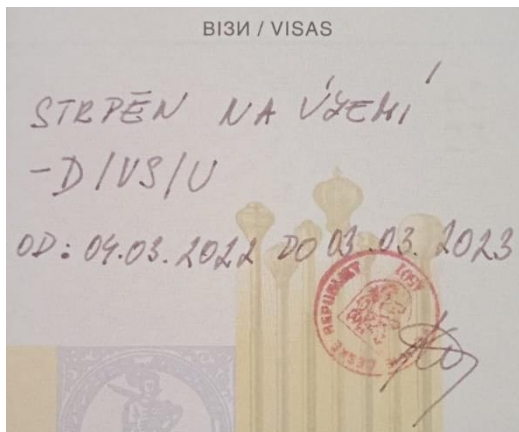 ВІЗИ / VISAS
STRPĚN NA ÚZEMÍ
-D/VS/U
OD: 04.03.2022 DO 03.03.2023
ČESKÉ REPUBLIKY